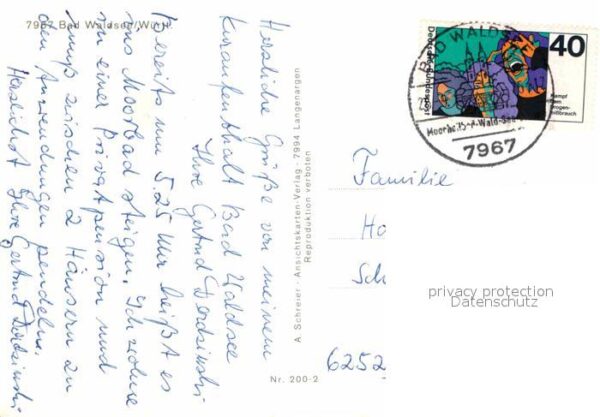 7967 Bad Waldsee/Württ.
Herzliche Grüße von meinem
Kuraufenthalt Bad Waldsee
Ihre Gertrud
Bereits um 5.25 Uhr heißt es
ins Moorbad steigen. Ich wohne
in einer Privatpension und
muß zwischen 2 Häusern zu
den Anwendungen pendeln.
Herzlichst Ihre Gertrud
A. Schreier - Ansichtskarten-Verlag - 7994 Langenargen
Reproduktion verboten
Nr. 200-2
BAD WALDSEE
7967
40
Deutsche Bundespost
Kampf
Drogen-
mißbrauch
Familie
Ho
Sch
privacy protection
Datenschutz
6252